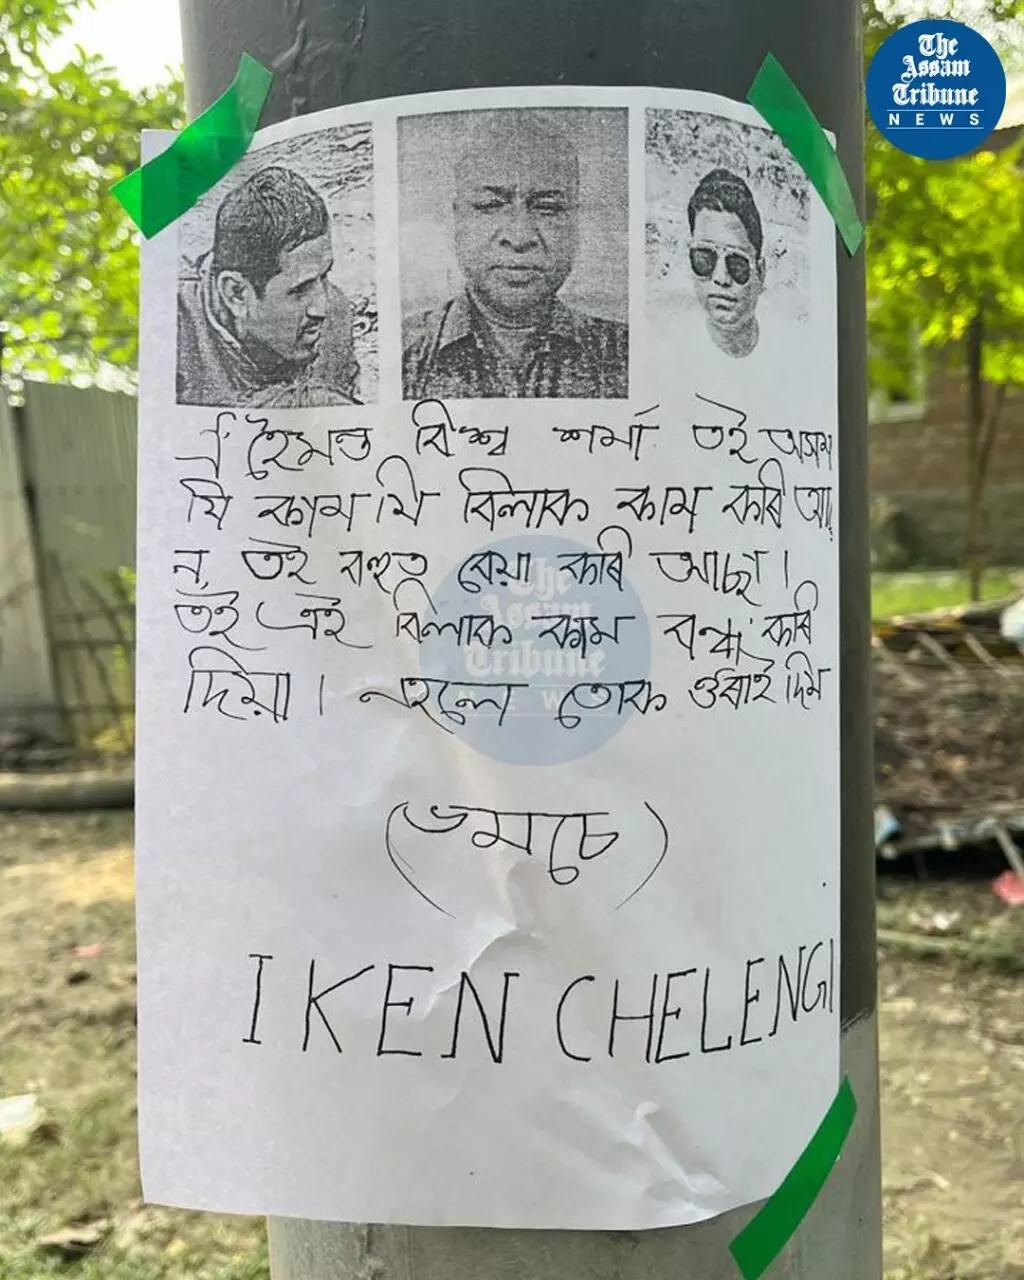 The
Assam
Tribune
NEWS
ঐ হৈমন্ত বিশ্ব শৰ্মা তই অসম
যি কাম যি বিলাক কাম কৰি আছ
ন, তই বহুত বেয়া কৰি আছা।
তই এই বিলাক কাম বন্ধ কৰি
দিয়া। নহলে তোক ওৰাই দিম
The
Assam
Tribune
NEWS
(ভমচে)
IKEN CHELENGI